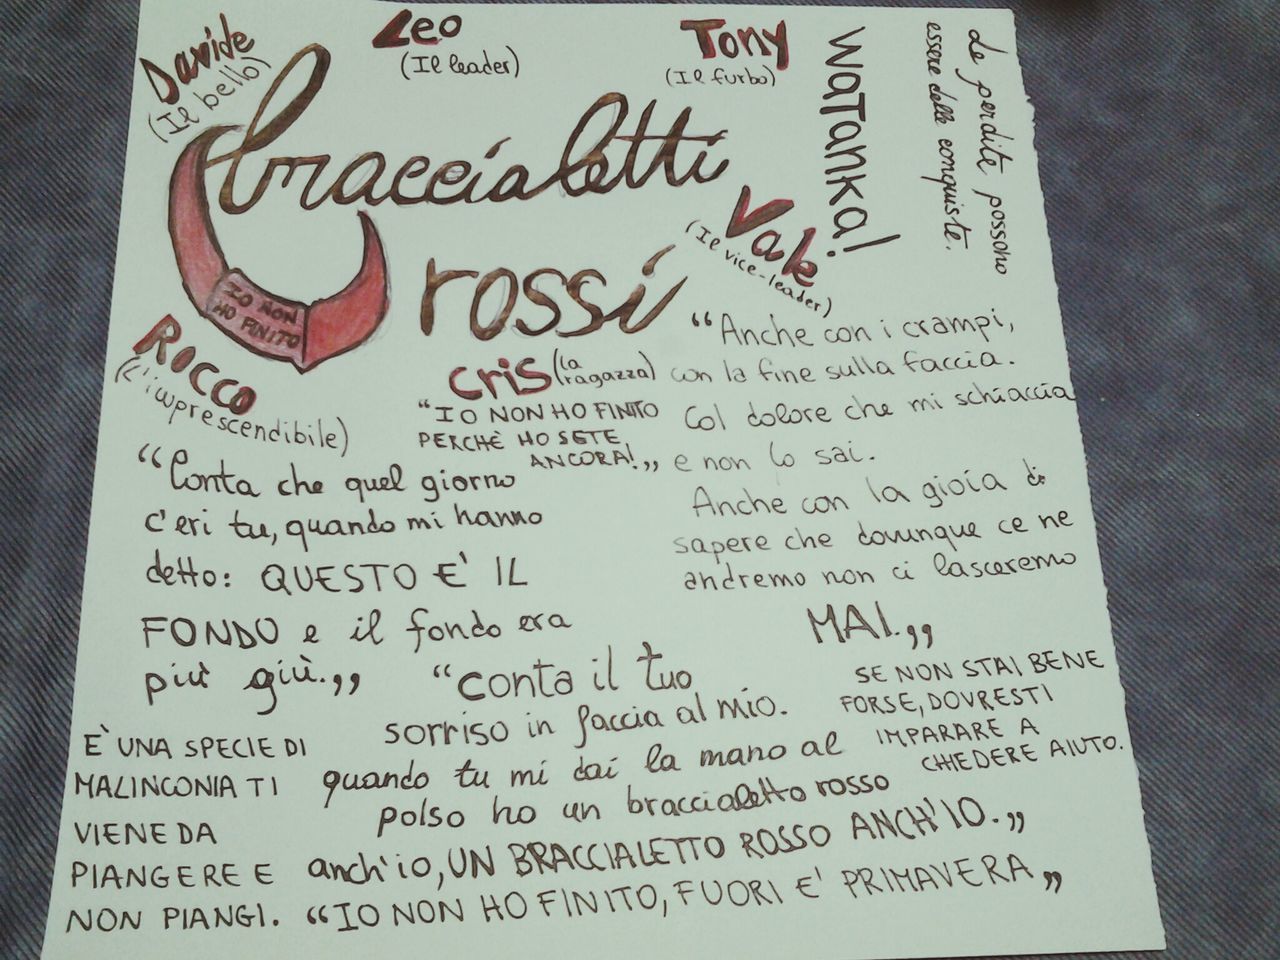 Davide
(Il bello)
Leo
(Il leader)
Tony
(Il furbo)
WaTanka!
Le perdite possono
essere delle conquiste.
braccialetti
rossi
Vale
(Il vice-leader)
IO NON
HO FINITO
Rocco
(L'imprescendibile)
Cris (la
ragazza)
"IO NON HO FINITO
PERCHÈ HO SETE
ANCORA!„
"Anche con i crampi,
con la fine sulla faccia.
Col dolore che mi schiaccia
e non lo sai.
Anche con la gioia di
sapere che dovunque ce ne
andremo non ci lasceremo
MAI.„
"Conta che quel giorno
c'eri tu, quando mi hanno
detto: QUESTO E' IL
FONDO e il fondo era
più giù.„
"conta il tuo
sorriso in faccia al mio.
quando tu mi dai la mano al
polso ho un braccialetto rosso
anch'io, UN BRACCIALETTO ROSSO ANCH'IO.„
SE NON STAI BENE
FORSE, DOVRESTI
IMPARARE A
CHIEDERE AIUTO.
E' UNA SPECIE DI
MALINCONIA TI
VIENE DA
PIANGERE E
NON PIANGI.
"IO NON HO FINITO, FUORI E' PRIMAVERA„